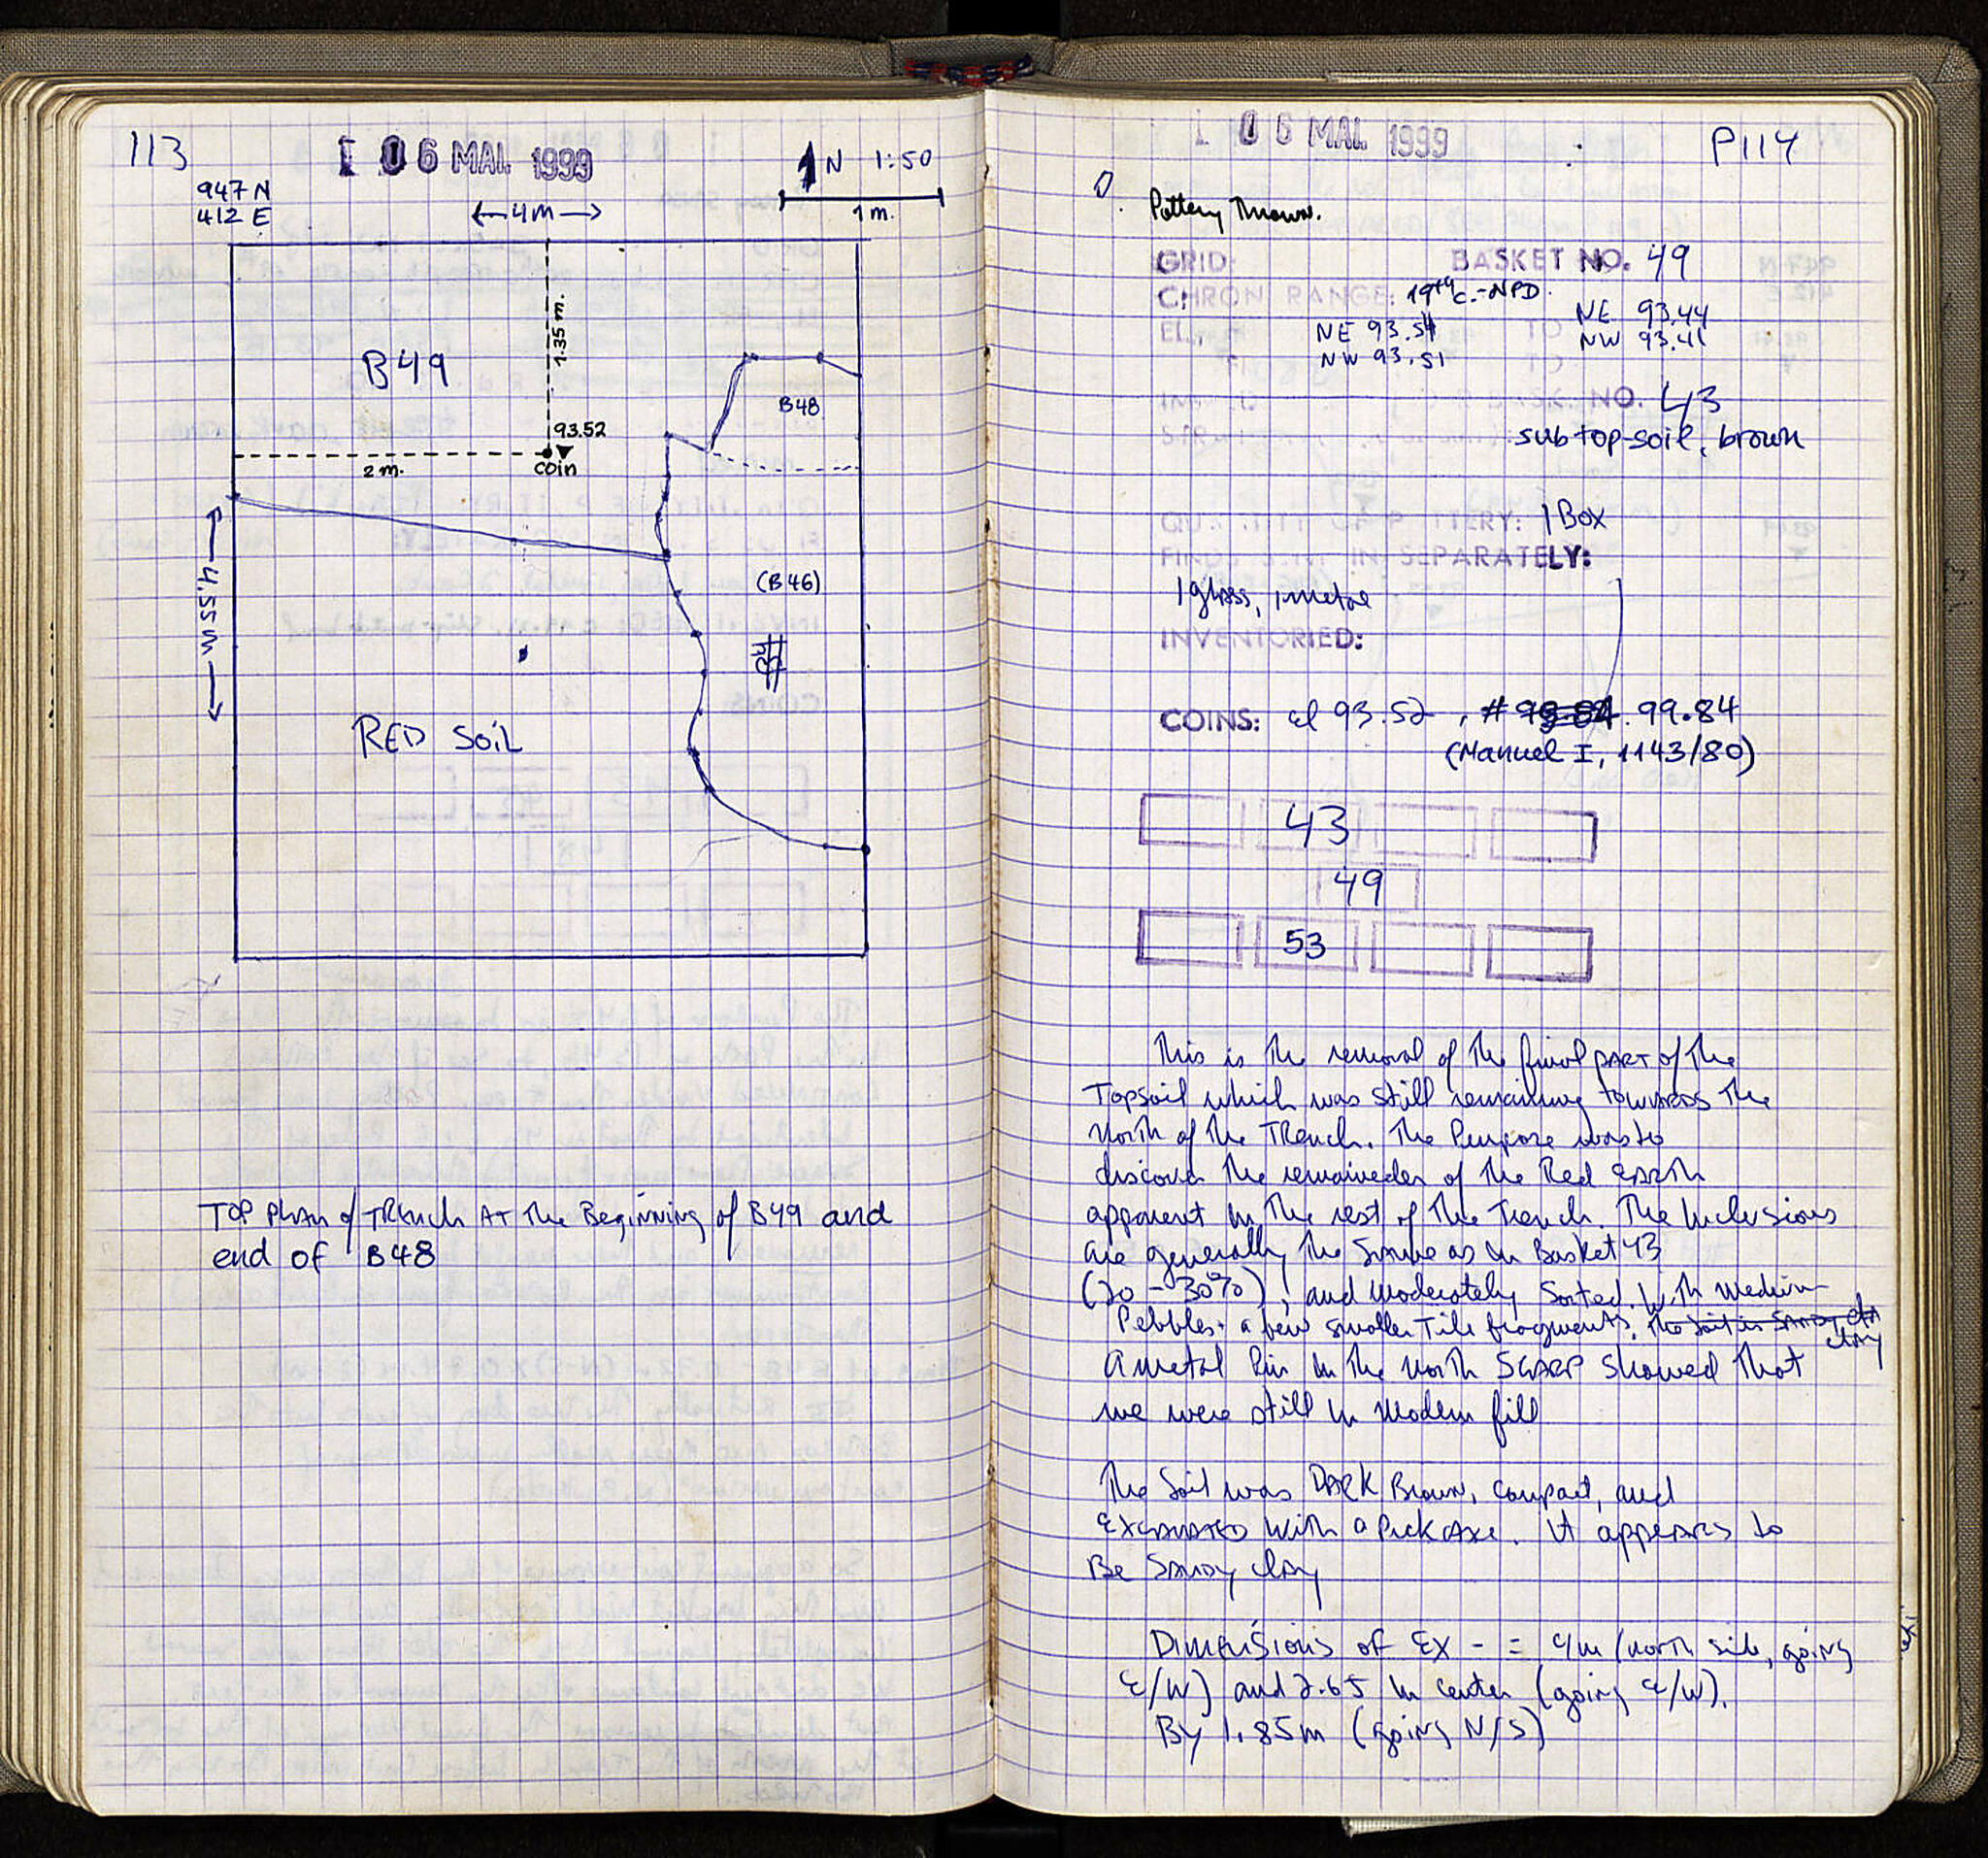 113
I 06 MAI. 1999
N 1:50
1 m.
947 N
412 E
←4m→
B49
1.35 m.
B48
93.52
2 m.
coin
←4.55 M→
(B46)
RED SOIL
TOP PLAN of TRENCH AT The Beginning of B49 and
end of B48
I 06 MAI. 1999
P114
Pottery Thrown.
GRID: BASKET NO. 49
CHRON RANGE: 19th c.-NPD.
EL. NE 93.54 TO NE 93.44
NW 93.51 TO NW 93.41
NO. 43
sub top-soil, brown
QUANTITY OF POTTERY: 1 Box
FINDS SENT IN SEPARATELY:
1 glass, 1 metal
INVENTORIED:
COINS: el 93.52, # 99.84
(Manuel I, 1143/80)
43
49
53
This is the removal of the final PART of the
Topsoil which was still remaining towards the
North of the Trench. The Purpose was to
discover the remaineder of the Red earth
apparent in the rest of the Trench. The Inclusions
are generally the Same as in Basket 43
(20-30%), and moderately Sorted. With medium
Pebbles + a few smaller Tile fragments. The soil is Sandy clay
clay
A metal Pin in the North SCARP showed that
we were still in modern fill
The Soil was Dark Brown, compact, and
Excavated with a Pick Axe. It appears to
Be Sandy clay
Dimensions of Ex - = 4m (north side, going
E/W) and 2.65 in center (going E/W).
By 1.85m (going N/S)